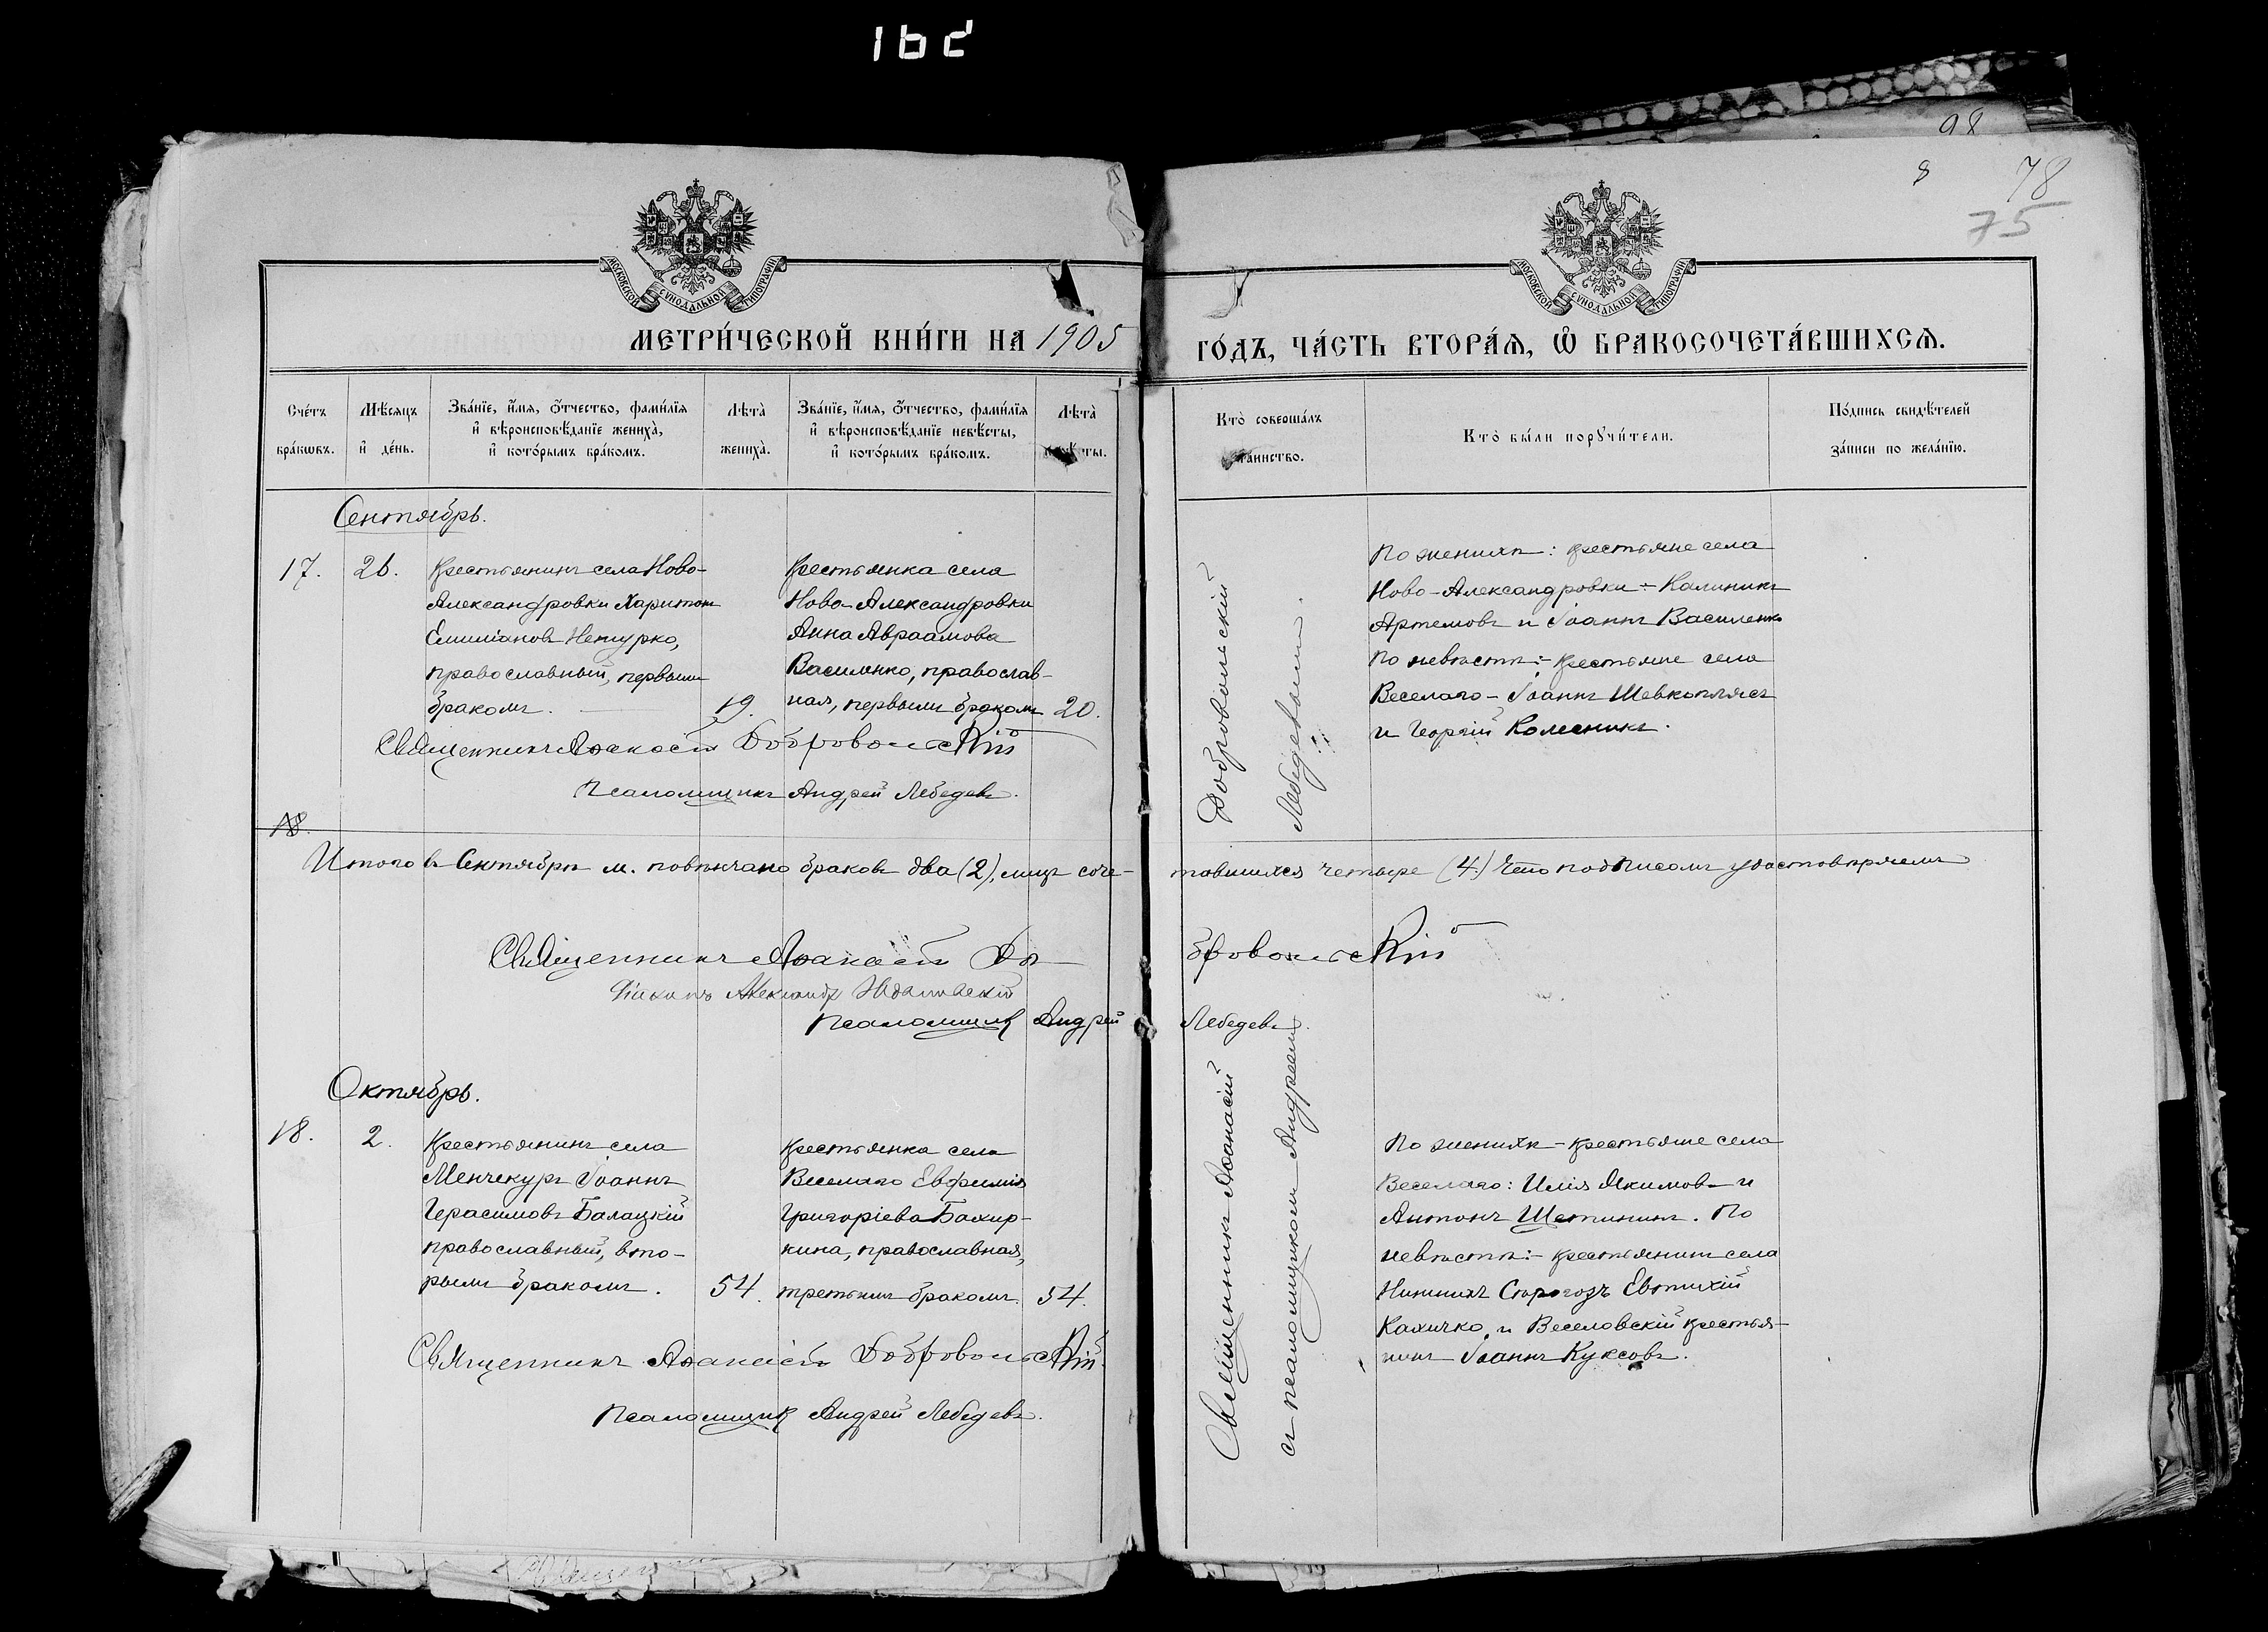 162
98
8
78
75
МОСКОВСКОЙ СѴНОДАЛЬНОЙ ТИПОГРАФІИ
МОСКОВСКОЙ СѴНОДАЛЬНОЙ ТИПОГРАФІИ
МЕТРИ́ЧЕСКОЙ КНИ́ГИ НА 1905
ГО́ДЪ, ЧА́СТЬ ВТОРА́Я, Ѡ҆ БРАКОСОЧЕТА́ВШИХСѦ.
Сче́тъ
бра́кѡвъ.
Мѣ́сяцъ
и҆ де́нь.
Зва́нїе, и҆́мя, ѻ҆́тчество, фами́лїя
и҆ вѣроисповѣ́данїе жениха̀,
и҆ кото́рымъ бра́комъ.
Лѣта̀
жениха̀.
Зва́нїе, и҆́мя, ѻ҆́тчество, фами́лїя
и҆ вѣроисповѣ́данїе невѣ́сты,
и҆ кото́рымъ бра́комъ.
Лѣта̀
невѣ́сты.
Кто̀ соверша́лъ
таинство.
Кто̀ бы́ли порꙋчи́тели.
По́дпись свидѣ́телей
за́писи по жела́нїю.
Сентябрь.
17.
26.
Крестьянинъ села Ново-
Александровки Харитон
Емиліановъ
православный, первымъ
бракомъ.
19.
Крестьянка села
Ново-Александровки
Анна Авраамова
Василенко, православ-
ная, первымъ бракомъ
20.
Добровольскій
Лебедевымъ.
По женихѣ: крестьяне села
Ново-Александровки:- Калиникъ
Артемовъ и Іоаннъ Василенко
По невѣстѣ:- крестьяне села
Веселаго - Іоаннъ Шевкоплясъ
и Георгій Колесникъ.
Священникъ Аѳанасій Добровольскій
Псаломщикъ Андрей Лебедевъ.
18.
Итого въ Сентябрѣ м. повѣнчано браковъ два (2), лицъ соче-
тавшихся четыре (4.) Что подписомъ удостовѣряемъ
Священникъ Аѳанасій До-
бровольскій
Діаконъ Александръ
Псаломщикъ Андрей
Лебедевъ.
Октябрь.
18.
2.
Крестьянинъ села
Менчекуръ Іоаннъ
Герасимовъ Балацкій
православный, вто-
рымъ бракомъ.
54.
Крестьянка села
Веселаго Евфимія
Григоріева Бахир-
кина, православная,
третьимъ бракомъ.
54.
Священникъ Аѳанасій
съ псаломщикомъ Андреемъ
По женихѣ - крестьяне села
Веселаго: Илія Якимовъ и
Антонъ Щетининъ. По
невѣстѣ:- крестьянинъ села
Нижнихъ Сѣрогозъ Евтихій
Кахичко, и Веселовскій крестья-
нинъ Іоаннъ Куксовъ.
Священникъ Аѳанасій Добровольскій.
Псаломщикъ Андрей Лебедевъ.